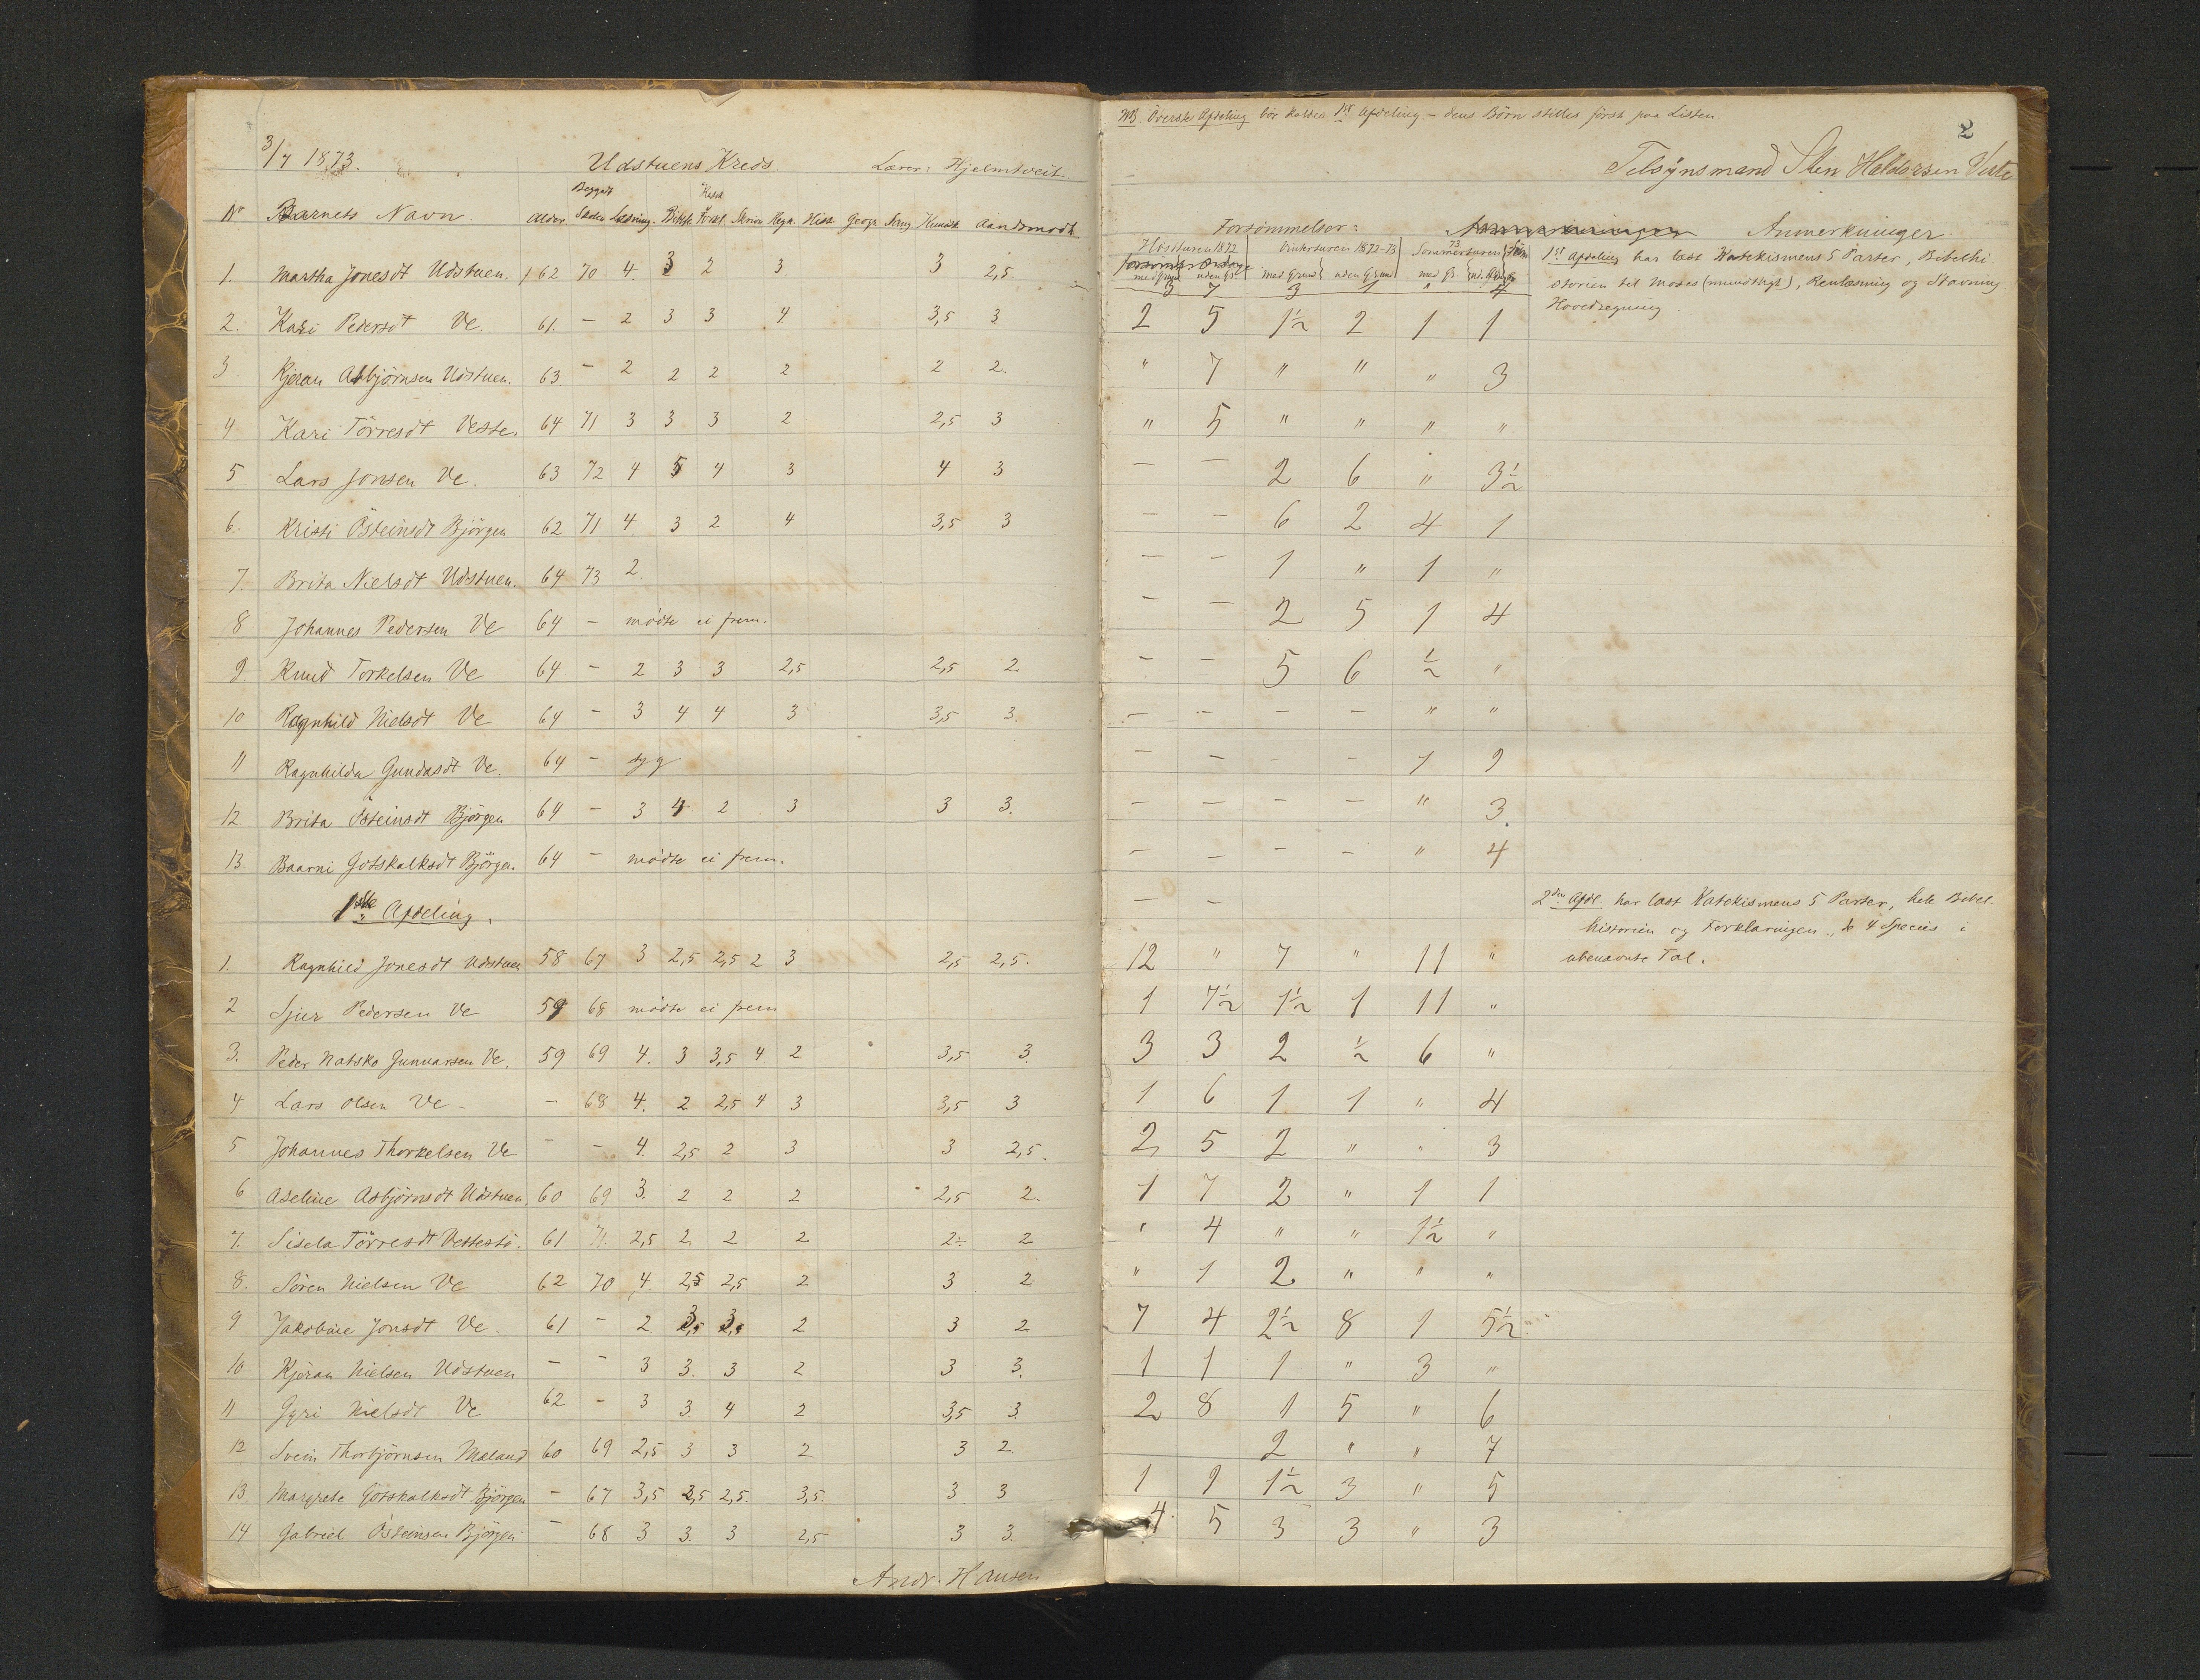 3/7 1873. Udstuens Kreds. Lærer: Hjelmtveit
No Barnets Navn. Alder Begyndt Skolen Læsning. Bibelh. Katek & Forkl. Skrivn Regn. Hist. Geogr. Sang Kundsk. Aandsmodh.
1. Martha Jonesdt Udstuen. 62 70 4. 3 2 3. 3 2,5
2. Kari Pedersdt Ve. 61. – 2 3 3 4 3,5 3
3 Kjøran Asbjørnsen Udstuen. 63 – 2 2 2 2 2 2.
4 Kari Törresdt Veste. 64 71 3 3 3 2 2,5 3
5 Lars Jonsen Ve. 63 72 4 5 4 3 4 3
6. Kristi Østeinsdt Björgen 62 71 4. 3 2 4 3,5 3
7. Brita Nielsdt Udstuen. 64 73 2.
8 Johannes Pedersen Ve 64 – mødte ei frem.
9. Knud Torkelsen Ve 64 – 2 3 3 2,5 2,5 2.
10 Ragnhild Nielsdt Ve 64 – 3 4 4 3 3,5 3.
11 Ragnhilda Gundasdt Ve. 64 – syg
12. Brita Østeinsdt Björgen 64 – 3 4 2 3 3 3.
13. Baarni Gotskalksdt Björgen. 64 – mødte ei frem.
1ste Afdeling.
1. Ragnhild Jonesdt Udstuen 58 67 3 2,5 2,5 2 3 2,5 2,5.
2 Sjur Pedersen Ve 59 68 mødte ei frem
3. Peder Natsko Gunnarsen Ve. 59 69 4. 3 3,5 4 2 3,5 3.
4 Lars Olsen Ve – – 68 4. 2 2,5 4 3 3,5 3
5 Johannes Thorkelsen Ve – – 4. 2,5 2 3 3 2,5.
6 Aseline Asbjørnsdt Udstuen. 60 69 3. 2 2 2 2,5 2.
7. Sisela Törresdt Vestestö. 61 71. 2,5 2 2 2 2÷ 2
8. Søren Nielsen Ve 62 70 4. 2,5 2,5 2 3 2
9 Jakobine Jonsdt Ve. 61 – 2 3 3 2 3 2
10 Kjøran Nielsen Udstuen – – 3 3. 3 2 3 3.
11 Gyri Nielsdt Ve 62 – 3 3 4 2 3,5 3.
12 Svein Thorbjørnsen Mæland 60 69 2,5 3 3 2 3 2.
13 Margrete Gotskalksdt Björgen – 67 3,5 2,5 2,5. 3,5. 3 3
14 Gabriel Østeinsen Björgen – 68 3 3. 3 2,5 3 3.
Andr. Hansen
NB. Øverste Afdeling bör kaldes 1ste Afdeling – dens Børn stilles først paa Listen.
2
Tilsynsmand Sten Haldorsen Veste
Forsømmelser: Anmerkninger.
Høstturen 1872 Vinterturen 1872–73 Sommerturen 73
med Grund uden Gr. med Grund uden Grund med Gr. ud. Gr.
3 7 3 1 " 4
2 5 1½ 2 1 1
" 7 " " " 3
" 5 " " " "
– – 2 6 " 3½
– – 6 2 4 1
– – 1 " 1 "
– – 2 5 1 4
– – 5 6 ½ "
– – – – " "
– – – – 1 9
– – – – " 3.
– – – – " 4
– –
12 " 7 " 11 "
1 7½ 1½ 1 11 "
3 3 2 ½ 6 "
1 6 1 1 " 4
2 5 2 " " 3
1 7 2 " 1 1
" 4 " " 1½ "
" 1 2 " " "
7 4 2½ 8 1 5½
1 1 1 " 3 "
2 8 1 5 " 6
2 " " 7
1 9 1½ 3 " 5
4 5 3 3 " 3
1ste Afdeling har læst Katekismens 5 Parter, Bibelhi-
storien til Moses (mundtligt), Renlæsning og Stavning
Hovedregning
2den Afdl. har læst Katekismens 5 Parter, hele Bibel-
historien og Forklaringen, de 4 Species i
ubenævnte Tal.